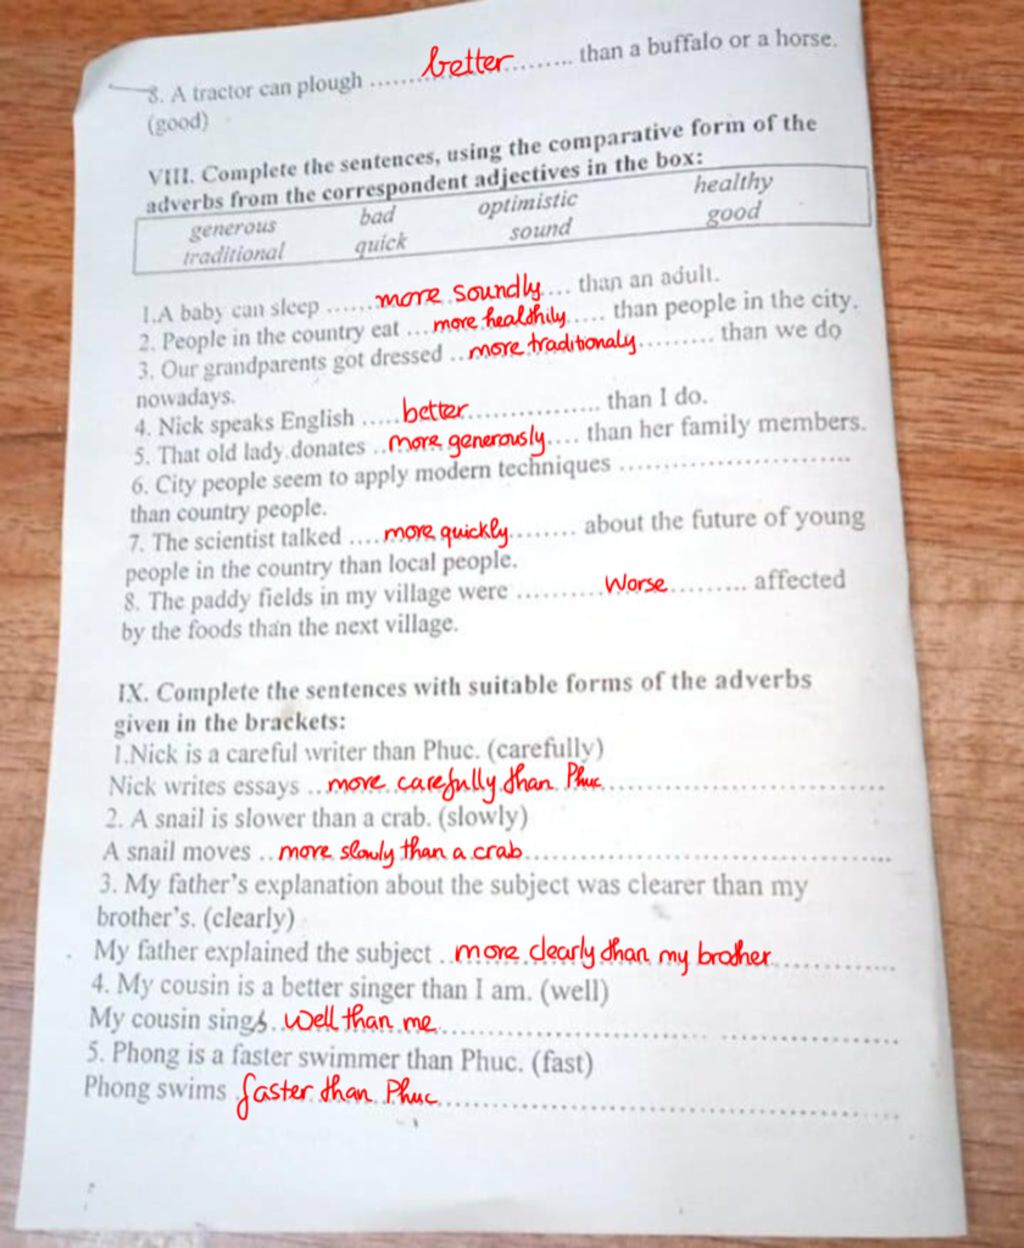 8. A tractor can plough ....... better ......... than a buffalo or a horse.
(good)
VIII. Complete the sentences, using the comparative form of the
adverbs from the correspondent adjectives in the box:
generous bad optimistic healthy
traditional quick sound good
1.A baby can sleep ....... more soundly .... than an adult.
2. People in the country eat ... more healthily ..... than people in the city.
3. Our grandparents got dressed .. more traditionaly ......... than we do
nowadays.
4. Nick speaks English ..... better ................ than I do.
5. That old lady donates .. more generously .... than her family members.
6. City people seem to apply modern techniques ............................
than country people.
7. The scientist talked .... more quickly ........ about the future of young
people in the country than local people.
8. The paddy fields in my village were .......... Worse ......... affected
by the foods than the next village.
IX. Complete the sentences with suitable forms of the adverbs
given in the brackets:
1.Nick is a careful writer than Phuc. (carefully)
Nick writes essays .. more carefully than Phuc ..............................
2. A snail is slower than a crab. (slowly)
A snail moves .. more slowly than a crab ........................................
3. My father's explanation about the subject was clearer than my
brother's. (clearly)
My father explained the subject .. more clearly than my brother .............
4. My cousin is a better singer than I am. (well)
My cousin sings .. well than me ..................................................
5. Phong is a faster swimmer than Phuc. (fast)
Phong swims faster than Phuc ..................................................